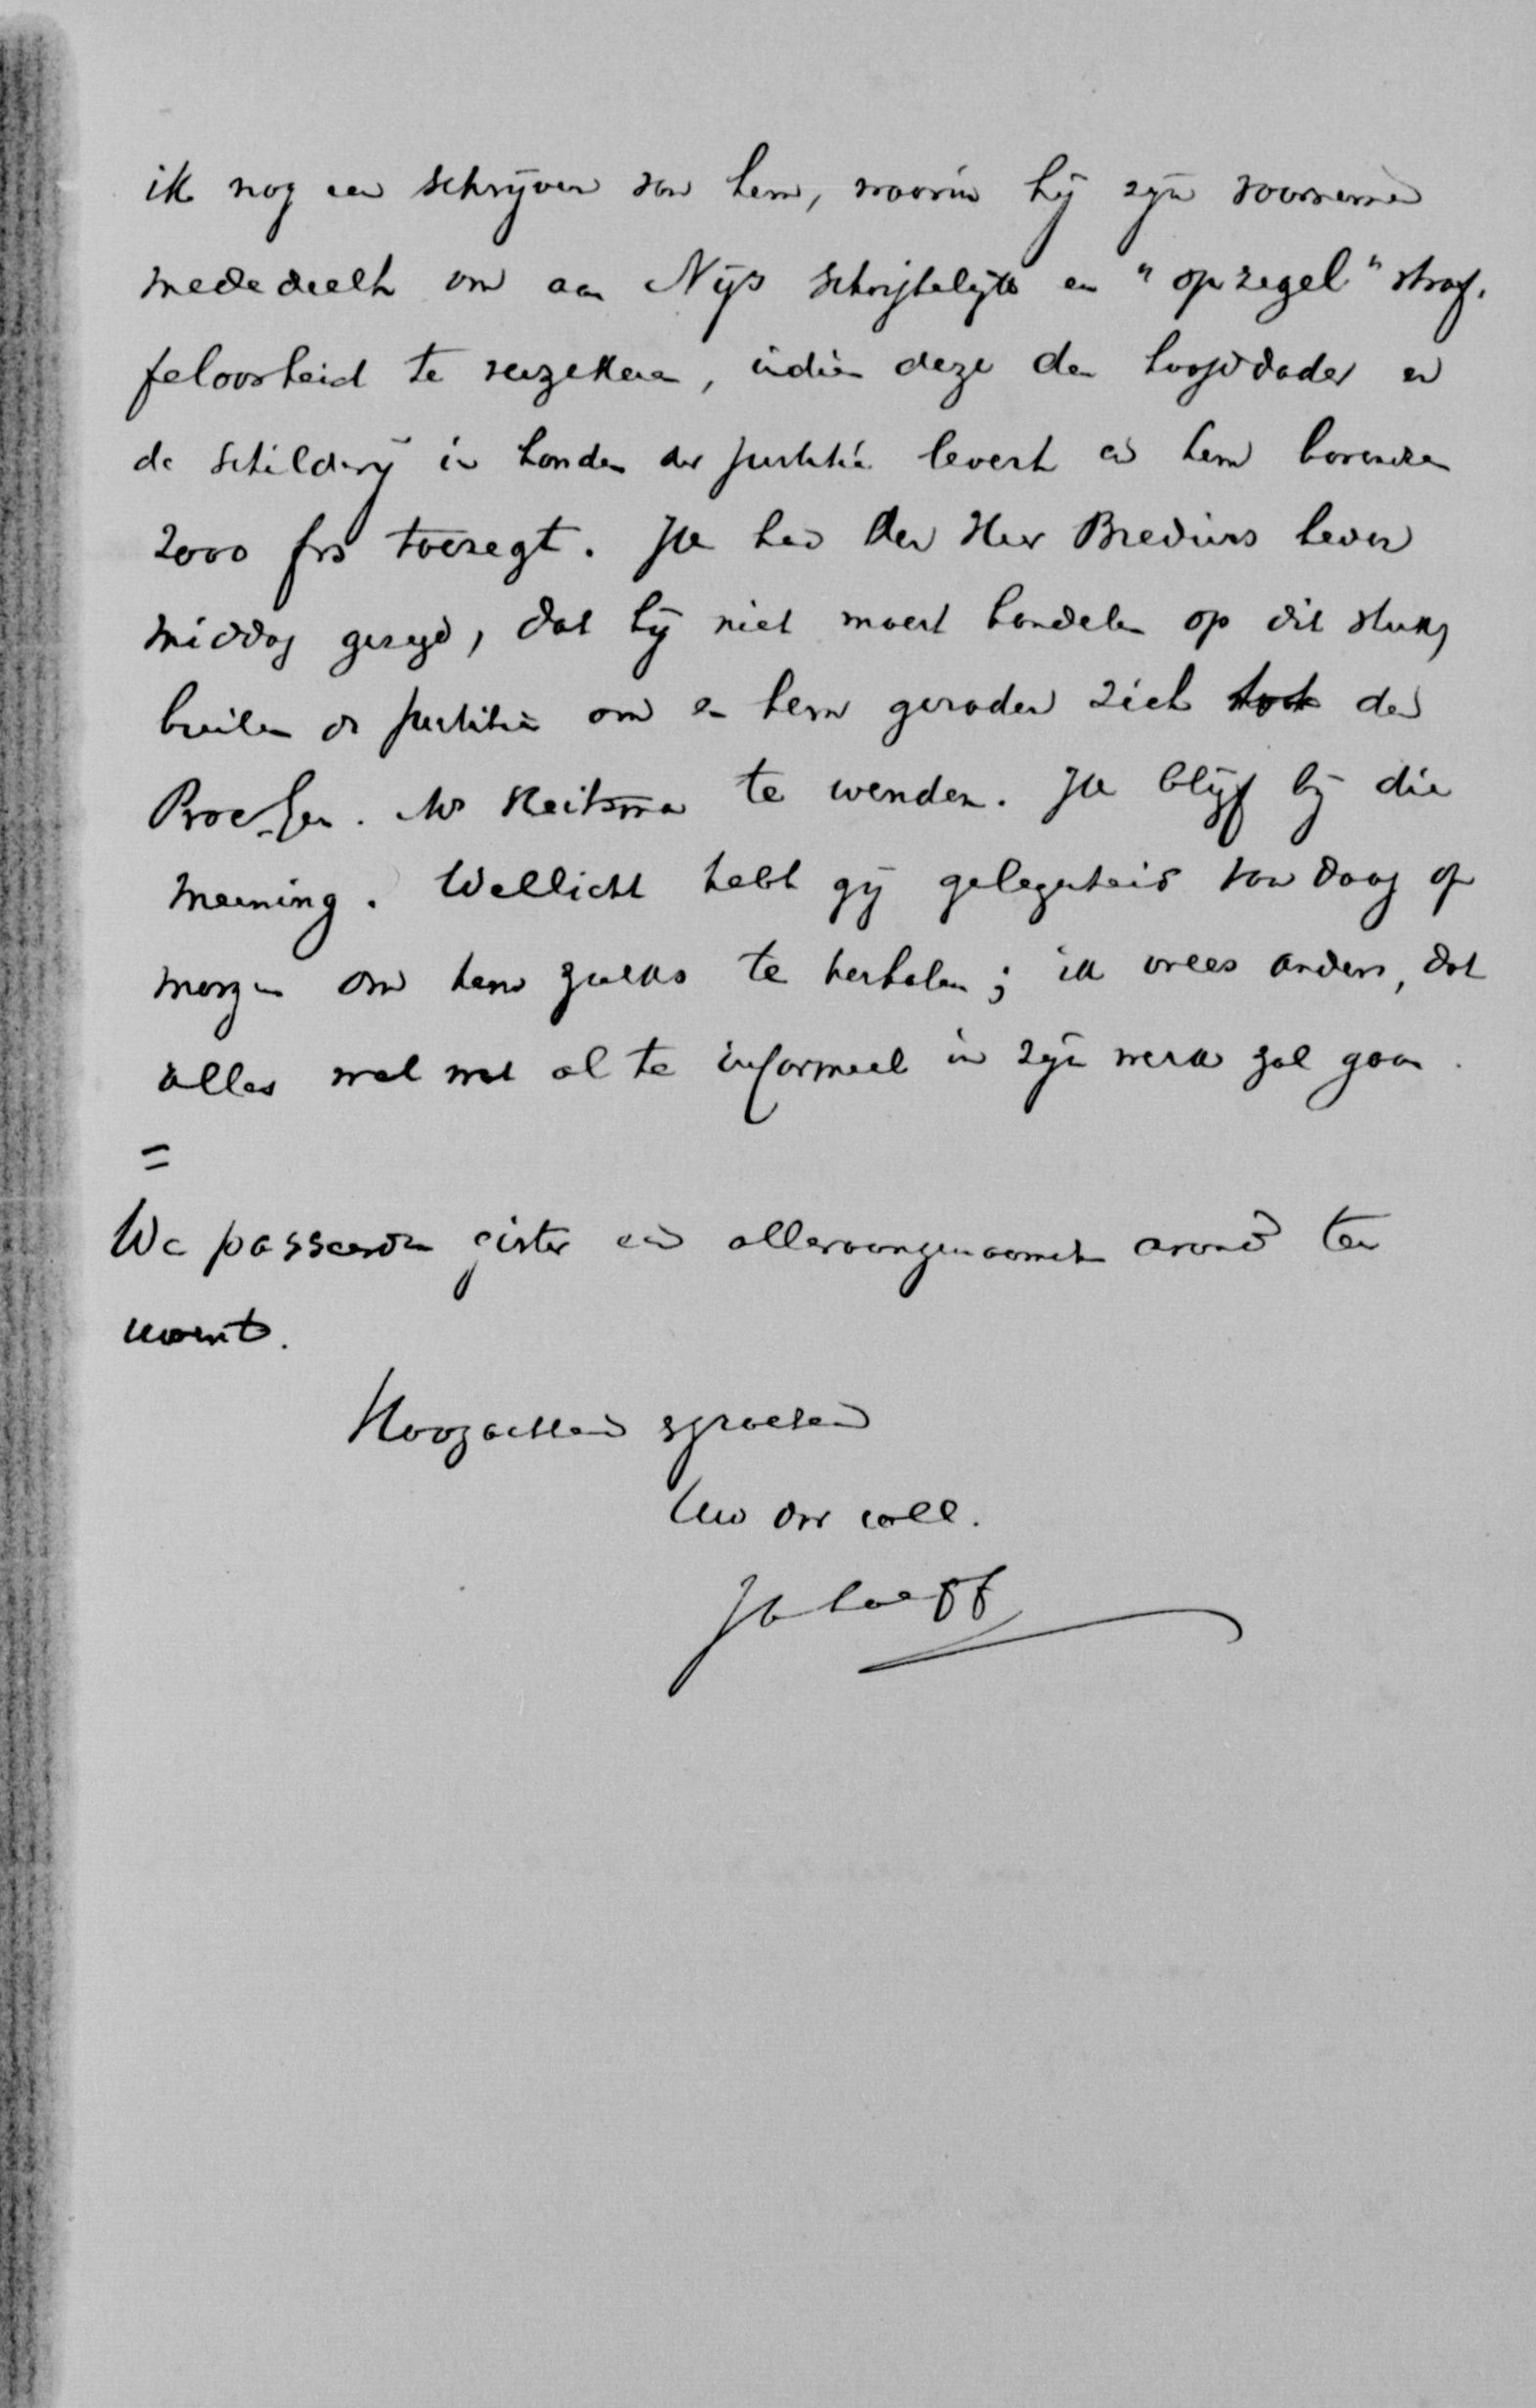 ik nog een schrijven van hem, waarin hij zijn voornemen
mededeelt om aan Nijs schriftelijk en "op zegel" straf-
feloosheid te verzekeren, indien deze den hoofddader en
de schilderij in handen der justitie levert en hem bovendien
2000 frs toezegt. Ik had den Heer Bredius heden
middag gezegd, dat hij niet moest handelen op dit stuk,
buiten de justitie om en hem geraden zich tot den
Proc. Gen. Mr Reitsma te wenden. Ik blijf bij die
meening. Wellicht hebt gij gelegenheid van daag of
morgen om hem zulks te herhalen; ik vrees anders, dat
alles wel wat al te informeel in zijn werk zal gaan.
=
We passeerden gister een alleraangenaamsten avond ten
uwent.
Hoogachtend
Uw dw coll.
JA Loeff